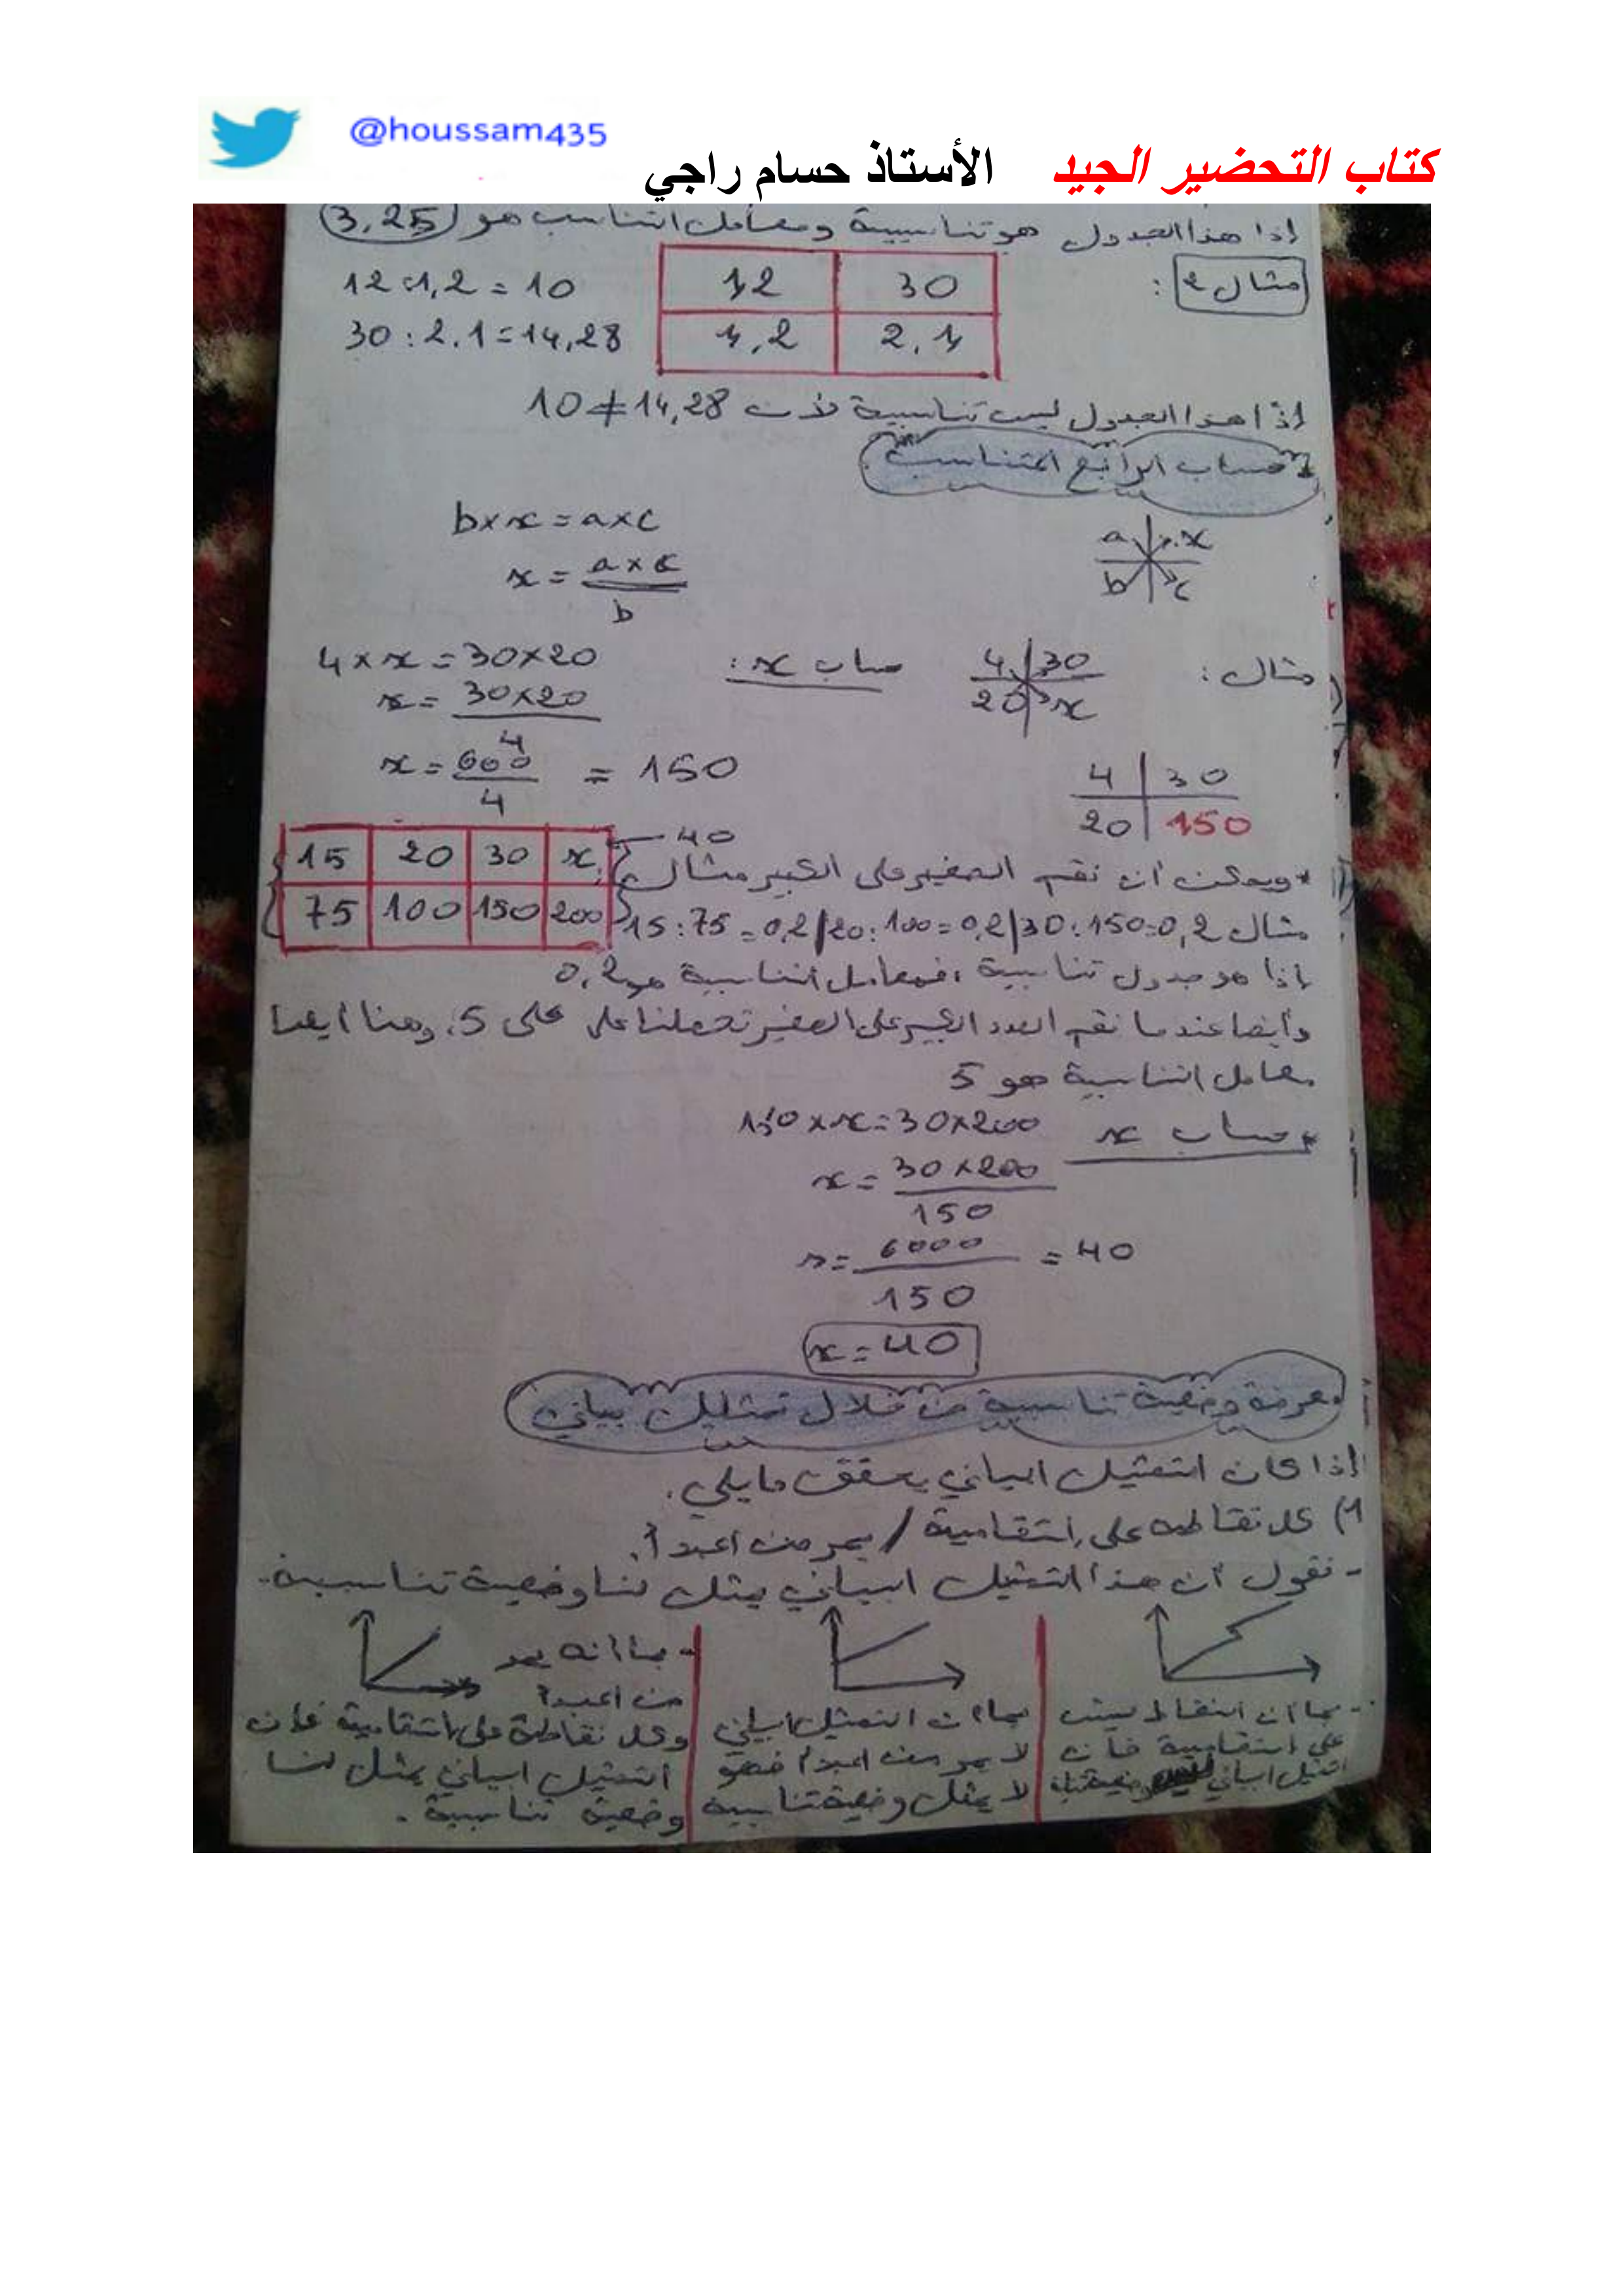 @houssam435
كتاب التحضير الجيد الأستاذ حسام راجي
إذا هذا الجدول هو تناسبية ومعامل التناسب هو 3,25
مثال 2 :
12 30
1,2 2,1
12 : 1,2 = 10
30 : 2,1 = 14,28
إذا هذا الجدول ليس تناسبية لأن 10 ≠ 14,28
حساب الرابع المتناسب
a x
b c
b×x = a×c
x = a×c
b
مثال :
4 30
20 x
حساب x :
4×x = 30×20
x = 30×20
4
x = 600 = 150
4
4 30
20 150
15 20 30 x 40
75 100 150 200
*ويمكن أن نقسم الصغير على الكبير مثال
مثال 15:75=0,2/20:100=0,2/30:150=0,2
إذا هو جدول تناسبية ، فمعامل التناسبية هو 0,2
وأيضا عندما نقسم العدد الكبير على الصغير تحصلنا على على 5، وهنا أيضا
معامل التناسبية هو 5
حساب x
150×x=30×200
x = 30×200
150
x = 6000 = 40
150
x = 40
معرفة وضعية تناسبية من خلال تمثيل بياني
إذا كان التمثيل البياني يحقق مايلي .
1) كل نقاطه على إستقامية / يمر من المبدأ .
- نقول أن هذا التمثيل البياني يمثل لنا وضعية تناسبية .
- بما أن النقاط ليست
على استقامية فإن
التمثيل البياني ليس
بما أن التمثيل البياني
لا يمر من المبدأ فهو
لا يمثل وضعية تناسبية
- بما أنه يمر
من المبدأ
وكل نقاطه على إستقامية فإن
التمثيل البياني يمثل لنا
وضعية تناسبية .